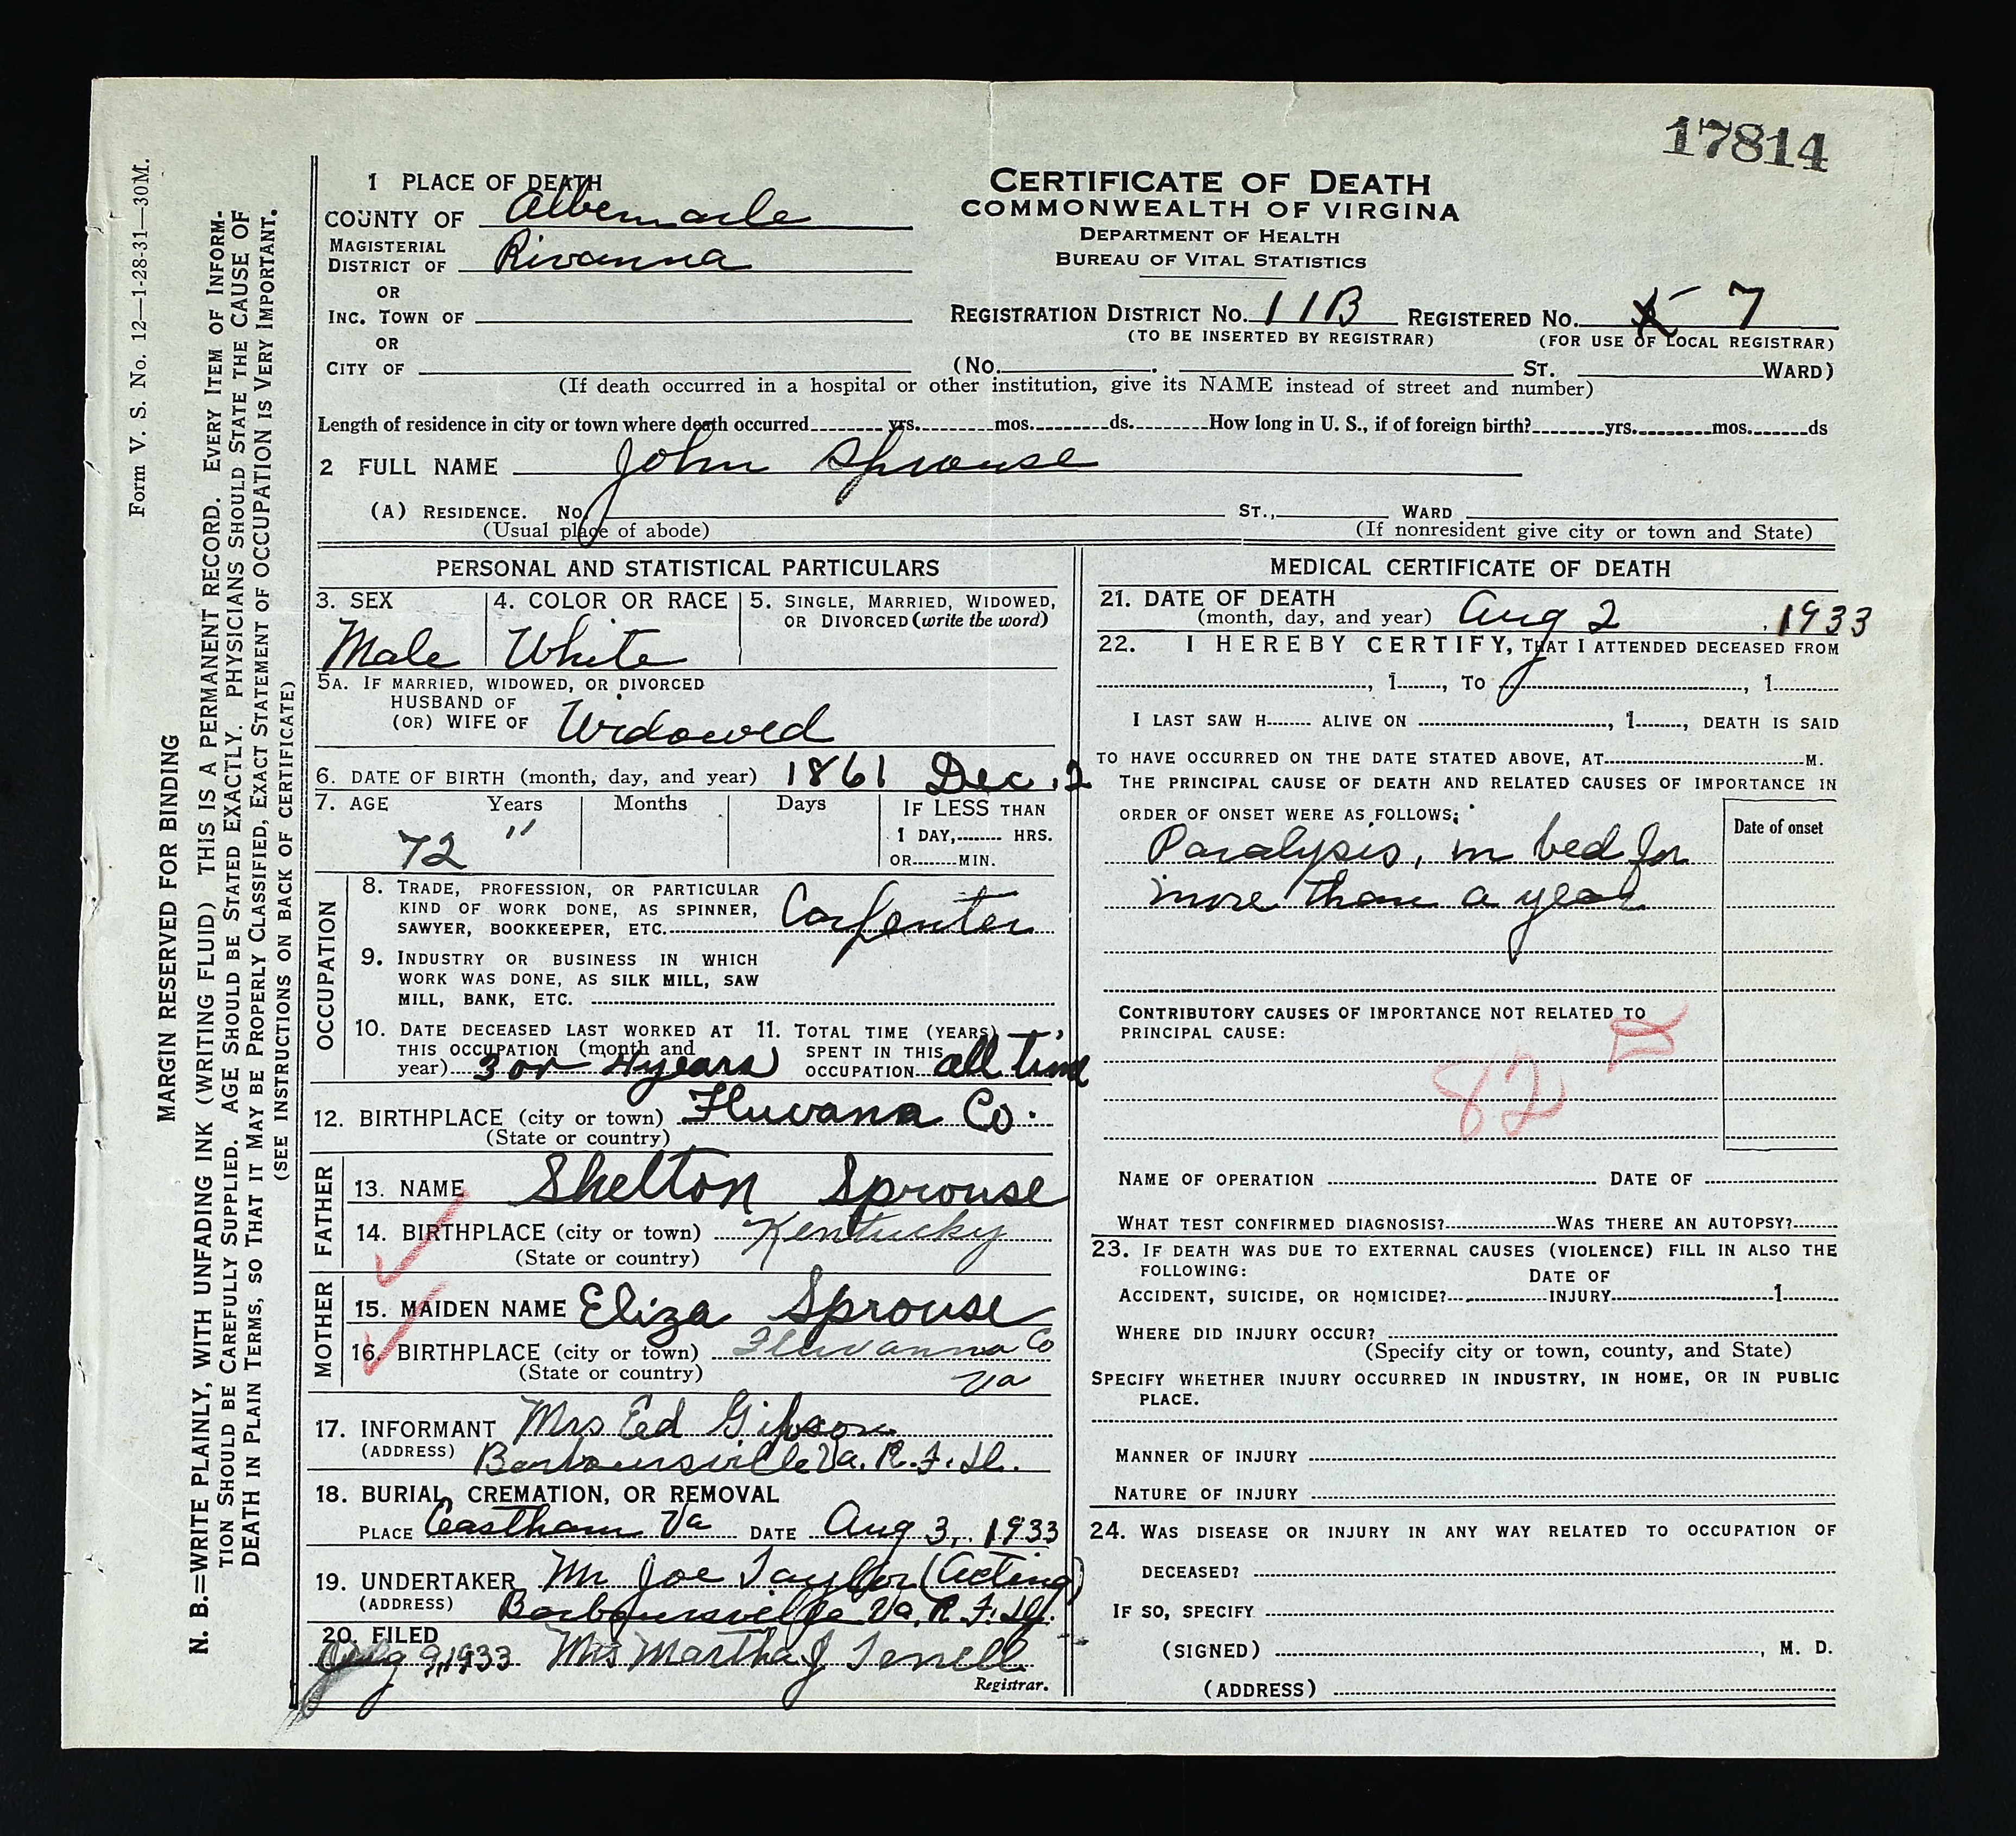 17814
Form V. S. No. 12—1-28-31—30M.
MARGIN RESERVED FOR BINDING
N. B.=WRITE PLAINLY, WITH UNFADING INK (WRITING FLUID) THIS IS A PERMANENT RECORD. EVERY ITEM OF INFORM-
TION SHOULD BE CAREFULLY SUPPLIED. AGE SHOULD BE STATED EXACTLY. PHYSICIANS SHOULD STATE THE CAUSE OF
DEATH IN PLAIN TERMS, SO THAT IT MAY BE PROPERLY CLASSIFIED, EXACT STATEMENT OF OCCUPATION IS VERY IMPORTANT.
(SEE INSTRUCTIONS ON BACK OF CERTIFICATE)
CERTIFICATE OF DEATH
COMMONWEALTH OF VIRGINA
DEPARTMENT OF HEALTH
BUREAU OF VITAL STATISTICS
1 PLACE OF DEATH
COUNTY OF Albemarle
MAGISTERIAL
DISTRICT OF Rivanna
OR
INC. TOWN OF
REGISTRATION DISTRICT NO. 11B REGISTERED NO. 7
(TO BE INSERTED BY REGISTRAR) (FOR USE OF LOCAL REGISTRAR)
OR
CITY OF (No. ST. WARD)
(If death occurred in a hospital or other institution, give its NAME instead of street and number)
Length of residence in city or town where death occurred yrs. mos. ds. How long in U. S., if of foreign birth? yrs. mos. ds
2 FULL NAME John Sprouse
(A) RESIDENCE. No. ST., WARD
(Usual place of abode) (If nonresident give city or town and State)
PERSONAL AND STATISTICAL PARTICULARS
3. SEX 4. COLOR OR RACE 5. SINGLE, MARRIED, WIDOWED,
OR DIVORCED (write the word)
Male White
5A. IF MARRIED, WIDOWED, OR DIVORCED
HUSBAND OF
(OR) WIFE OF Widowed
6. DATE OF BIRTH (month, day, and year) 1861 Dec. 2
7. AGE Years Months Days IF LESS THAN
72 " 1 DAY, HRS.
OR MIN.
OCCUPATION
8. TRADE, PROFESSION, OR PARTICULAR
KIND OF WORK DONE, AS SPINNER,
SAWYER, BOOKKEEPER, ETC. Carpenter
9. INDUSTRY OR BUSINESS IN WHICH
WORK WAS DONE, AS SILK MILL, SAW
MILL, BANK, ETC.
10. DATE DECEASED LAST WORKED AT 11. TOTAL TIME (YEARS)
THIS OCCUPATION (month and SPENT IN THIS
year) 3 or 4 years OCCUPATION all time
12. BIRTHPLACE (city or town) Fluvana Co.
(State or country)
FATHER
13. NAME Shelton Sprouse
14. BIRTHPLACE (city or town) Kentucky
(State or country)
MOTHER
15. MAIDEN NAME Eliza Sprouse
16. BIRTHPLACE (city or town) Fluvanna Co
(State or country) Va
17. INFORMANT Mrs Ed Gibson
(ADDRESS) Barboursville Va. R.F.D.
18. BURIAL, CREMATION, OR REMOVAL
PLACE Eastham Va DATE Aug 3, 1933
19. UNDERTAKER Mr Joe Taylor (Acting)
(ADDRESS) Barboursville Va. R.F.D.
20. FILED
Aug 9, 1933 Mrs Martha J Terrell
Registrar.
MEDICAL CERTIFICATE OF DEATH
21. DATE OF DEATH
(month, day, and year) Aug 2, 1933
22. I HEREBY CERTIFY, THAT I ATTENDED DECEASED FROM
, 1 , TO , 1
I LAST SAW H ALIVE ON , 1 , DEATH IS SAID
TO HAVE OCCURRED ON THE DATE STATED ABOVE, AT M.
THE PRINCIPAL CAUSE OF DEATH AND RELATED CAUSES OF IMPORTANCE IN
ORDER OF ONSET WERE AS FOLLOWS:
Date of onset
Paralysis, in bed for
more than a year
CONTRIBUTORY CAUSES OF IMPORTANCE NOT RELATED TO
PRINCIPAL CAUSE:
82 D
NAME OF OPERATION DATE OF
WHAT TEST CONFIRMED DIAGNOSIS? WAS THERE AN AUTOPSY?
23. IF DEATH WAS DUE TO EXTERNAL CAUSES (VIOLENCE) FILL IN ALSO THE
FOLLOWING: DATE OF
ACCIDENT, SUICIDE, OR HOMICIDE? INJURY 1
WHERE DID INJURY OCCUR?
(Specify city or town, county, and State)
SPECIFY WHETHER INJURY OCCURRED IN INDUSTRY, IN HOME, OR IN PUBLIC
PLACE.
MANNER OF INJURY
NATURE OF INJURY
24. WAS DISEASE OR INJURY IN ANY WAY RELATED TO OCCUPATION OF
DECEASED?
IF SO, SPECIFY
(SIGNED) , M. D.
(ADDRESS)